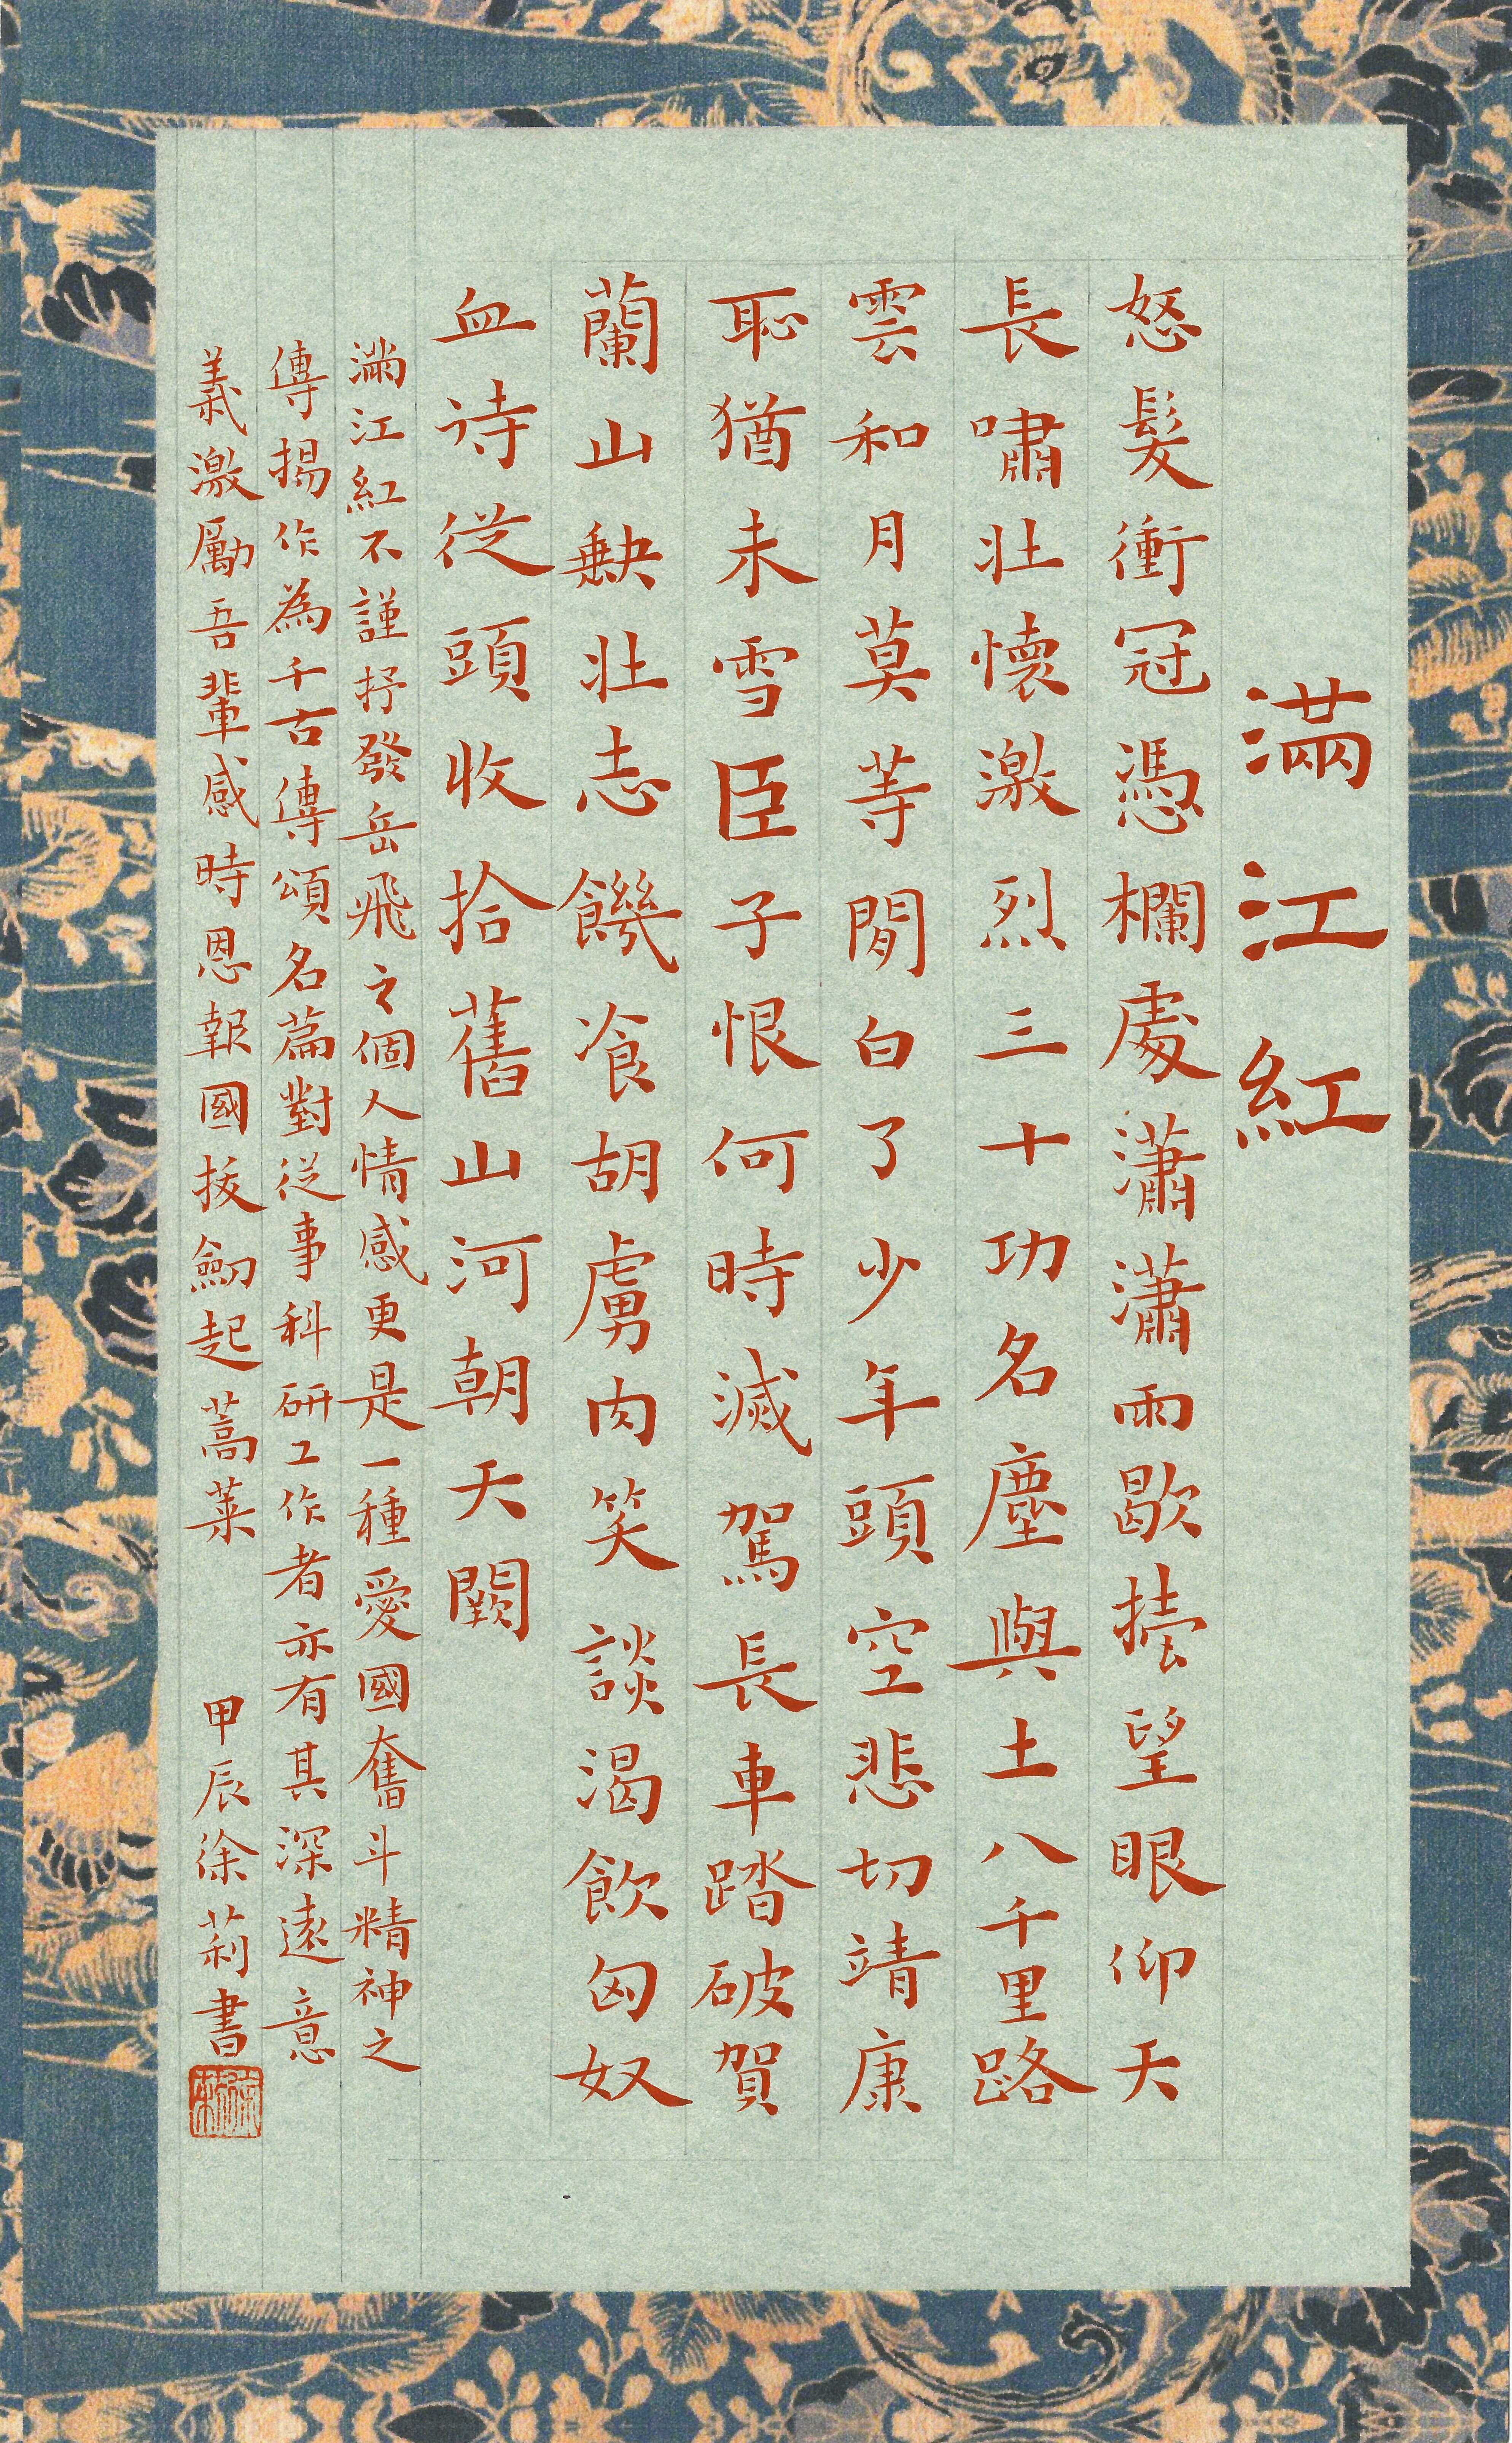 滿江紅
怒髮衝冠憑欄處瀟瀟雨歇擡望眼仰天
長嘯壯懷激烈三十功名塵與土八千里路
雲和月莫等閒白了少年頭空悲切靖康
恥猶未雪臣子恨何時滅駕長車踏破賀
蘭山缺壯志饑飡胡虜肉笑談渴飲匈奴
血诗從頭收拾舊山河朝天闕
滿江紅不謹抒發岳飛之個人情感更是一種愛國奮斗精神之
傳揚作為千古傳頌名篇對從事科研工作者亦有其深遠意
義激勵吾輩感時恩報國拔劍起蒿萊 甲辰徐莉書